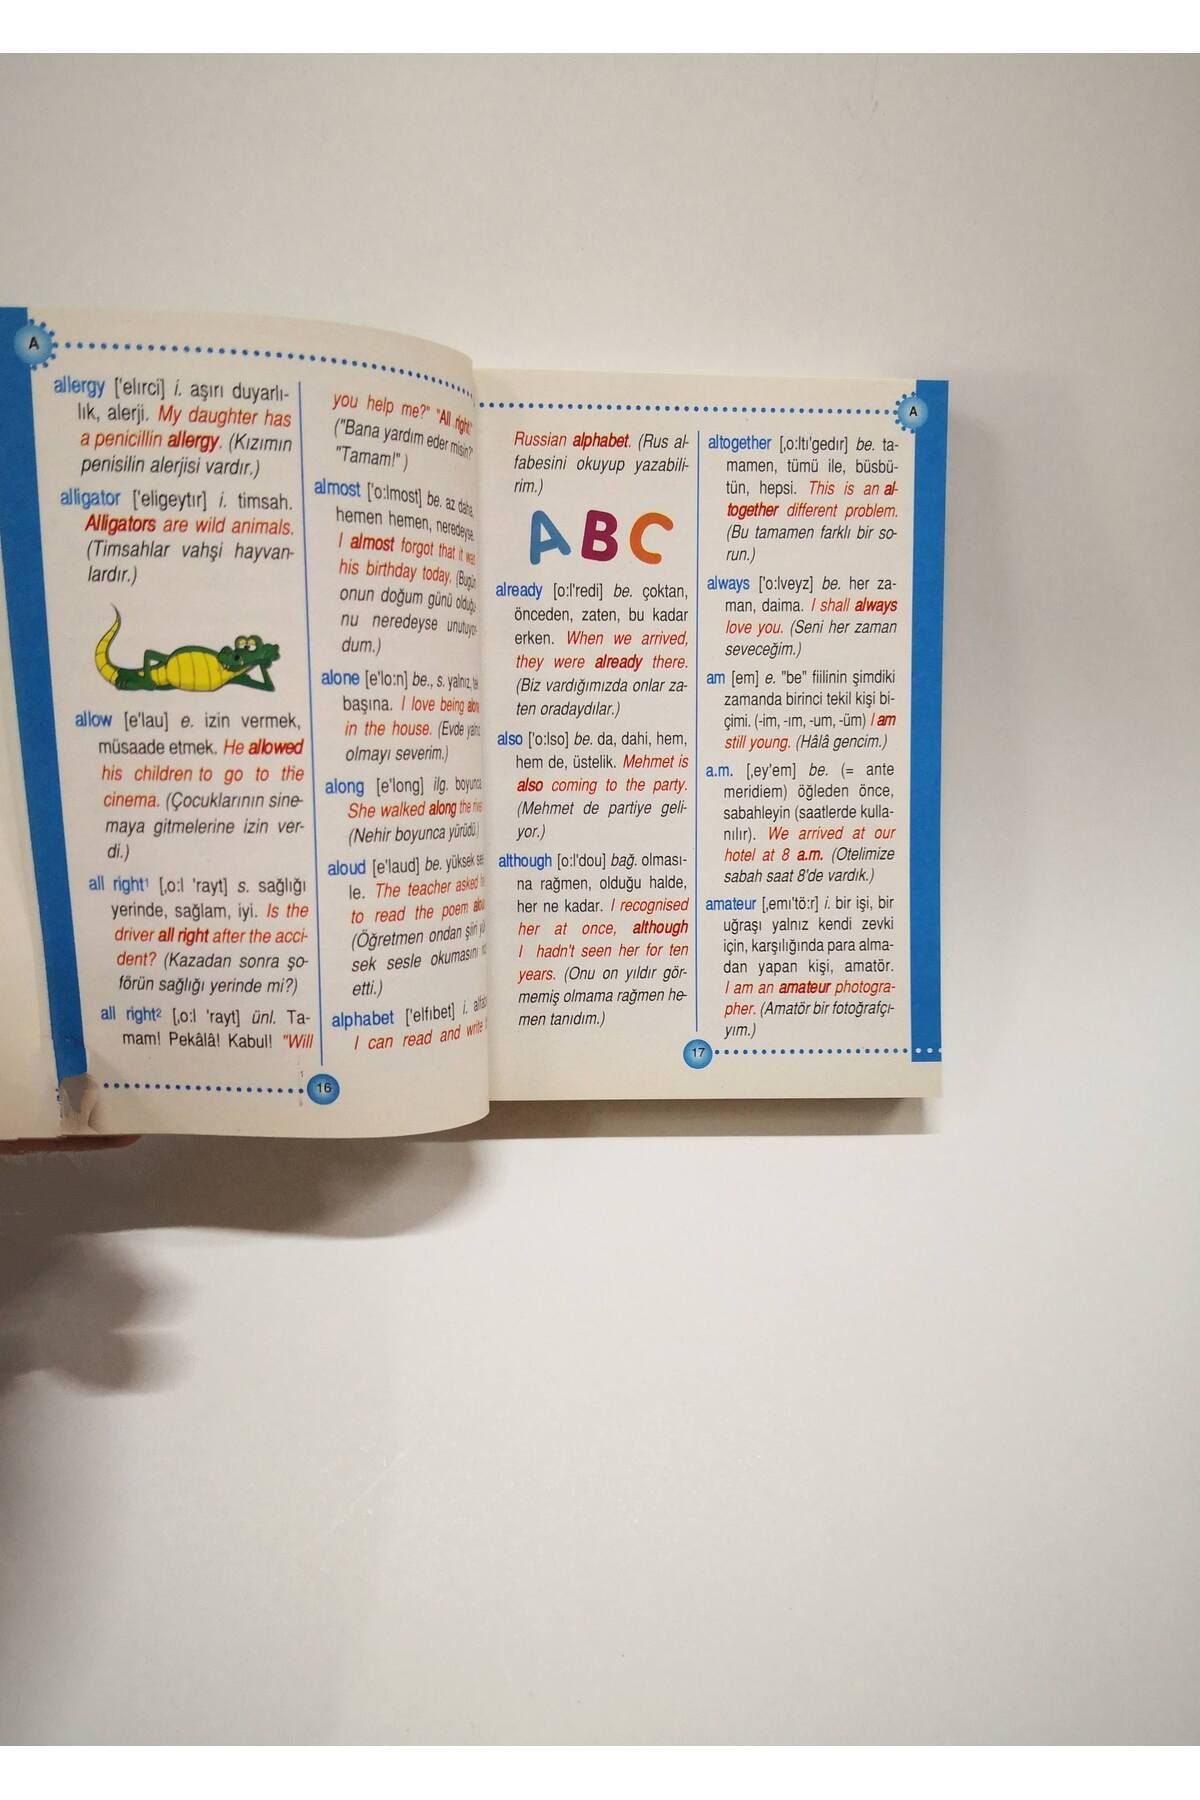 A
allergy ['elırci] i. aşırı duyarlı-
lık, alerji. My daughter has
a penicillin allergy. (Kızımın
penisilin alerjisi vardır.)
alligator ['eligeytır] i. timsah.
Alligators are wild animals.
(Timsahlar vahşi hayvan-
lardır.)
allow [e'lau] e. izin vermek,
müsaade etmek. He allowed
his children to go to the
cinema. (Çocuklarının sine-
maya gitmelerine izin ver-
di.)
all right¹ [,o:l 'rayt] s. sağlığı
yerinde, sağlam, iyi. Is the
driver all right after the acci-
dent? (Kazadan sonra şo-
förün sağlığı yerinde mi?)
all right² [,o:l 'rayt] ünl. Ta-
mam! Pekâlâ! Kabul! "Will
you help me?" "All right."
("Bana yardım eder misin?"
"Tamam!" )
almost ['o:lmost] be. az daha,
hemen hemen, neredeyse.
I almost forgot that it was
his birthday today. (Bugün
onun doğum günü olduğu-
nu neredeyse unutuyor-
dum.)
alone [e'lo:n] be., s. yalnız, tek
başına. I love being alone
in the house. (Evde yalnız
olmayı severim.)
along [e'long] ilg. boyunca.
She walked along the
(Nehir boyunca yürüdü.)
aloud [e'laud] be. yüksek ses-
le. The teacher asked
to read the poem
(Öğretmen ondan şiiri yük-
sek sesle okumasını
etti.)
alphabet ['elfıbet] i.
I can read and write
16
A
Russian alphabet. (Rus al-
fabesini okuyup yazabili-
rim.)
ABC
already [o:l'redi] be. çoktan,
önceden, zaten, bu kadar
erken. When we arrived,
they were already there.
(Biz vardığımızda onlar za-
ten oradaydılar.)
also ['o:lso] be. da, dahi, hem,
hem de, üstelik. Mehmet is
also coming to the party.
(Mehmet de partiye geli-
yor.)
although [o:l'dou] bağ. olması-
na rağmen, olduğu halde,
her ne kadar. I recognised
her at once, although
I hadn't seen her for ten
years. (Onu on yıldır gör-
memiş olmama rağmen he-
men tanıdım.)
altogether [,o:ltı'gedır] be. ta-
mamen, tümü ile, büsbü-
tün, hepsi. This is an al-
together different problem.
(Bu tamamen farklı bir so-
run.)
always ['o:lveyz] be. her za-
man, daima. I shall always
love you. (Seni her zaman
seveceğim.)
am [em] e. "be" fiilinin şimdiki
zamanda birinci tekil kişi bi-
çimi. (-im, -ım, -um, -üm) I am
still young. (Hâlâ gencim.)
a.m. [,ey'em] be. (= ante
meridiem) öğleden önce,
sabahleyin (saatlerde kulla-
nılır). We arrived at our
hotel at 8 a.m. (Otelimize
sabah saat 8'de vardık.)
amateur [,emı'tö:r] i. bir işi, bir
uğraşı yalnız kendi zevki
için, karşılığında para alma-
dan yapan kişi, amatör.
I am an amateur photogra-
pher. (Amatör bir fotoğrafçı-
yım.)
17